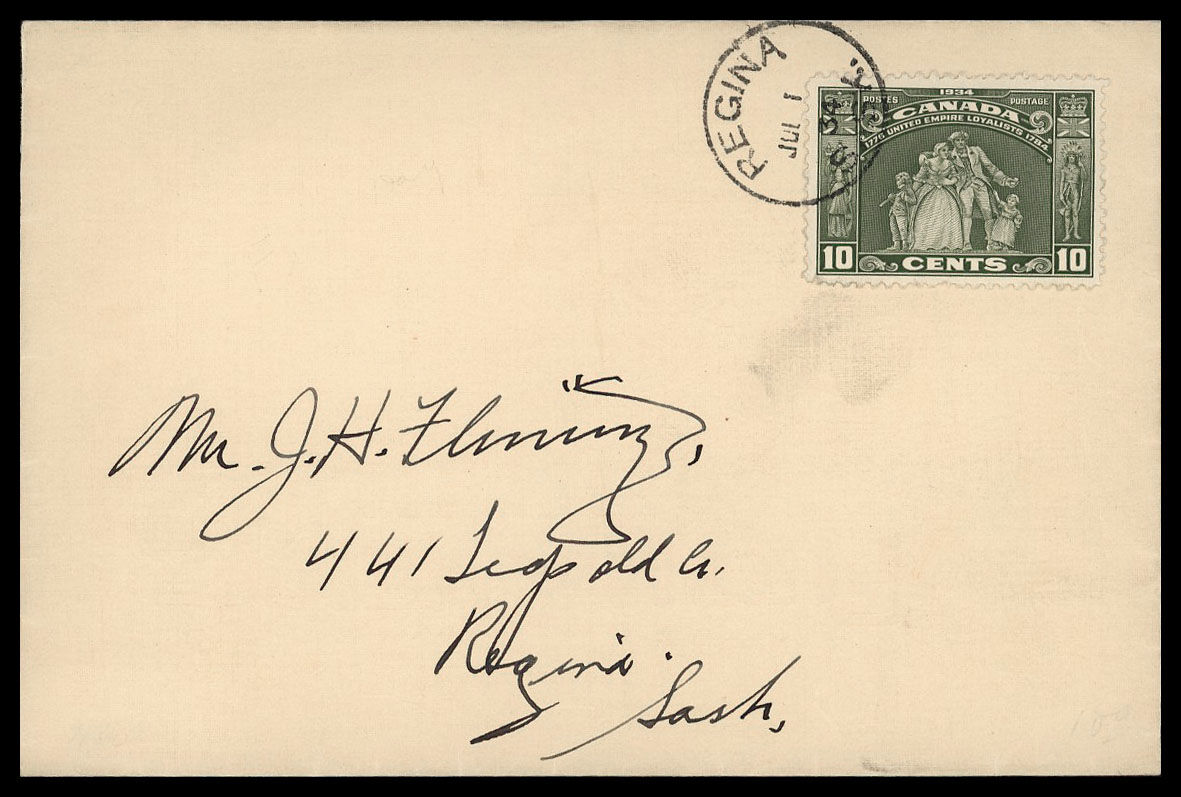 REGINA
JUL 1
34
1934
POSTES POSTAGE
CANADA
1776 UNITED EMPIRE LOYALISTS 1784
10 CENTS 10
Mr. J. H. Fleming,
441 Leopold Cr.
Regina.
Sask,